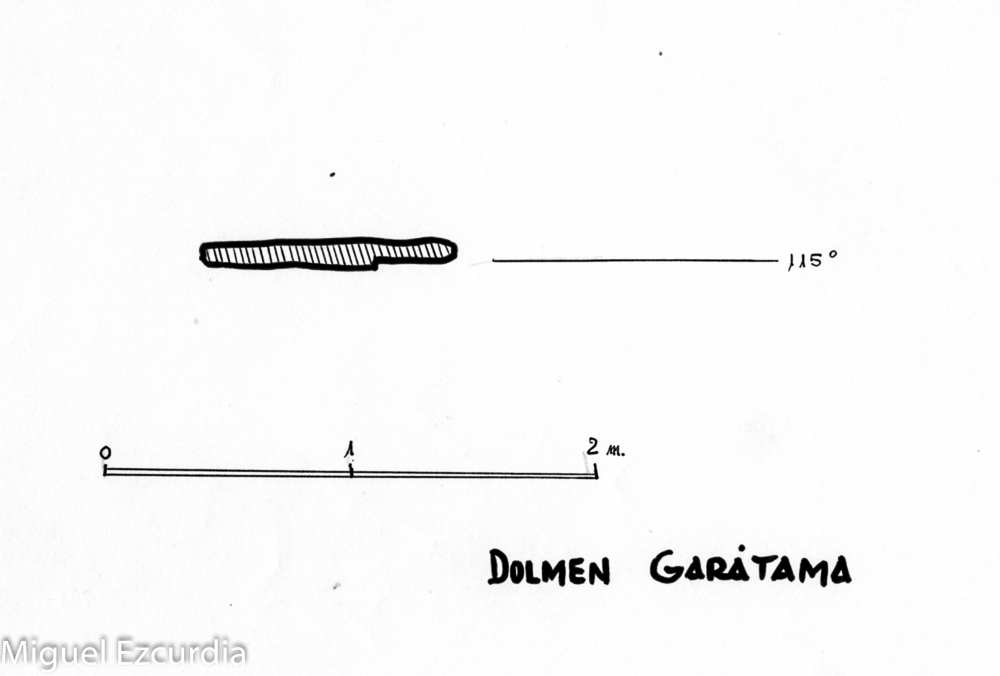 115°
0 1 2 m.
DOLMEN GARÁTAMA
Miguel Ezcurdia